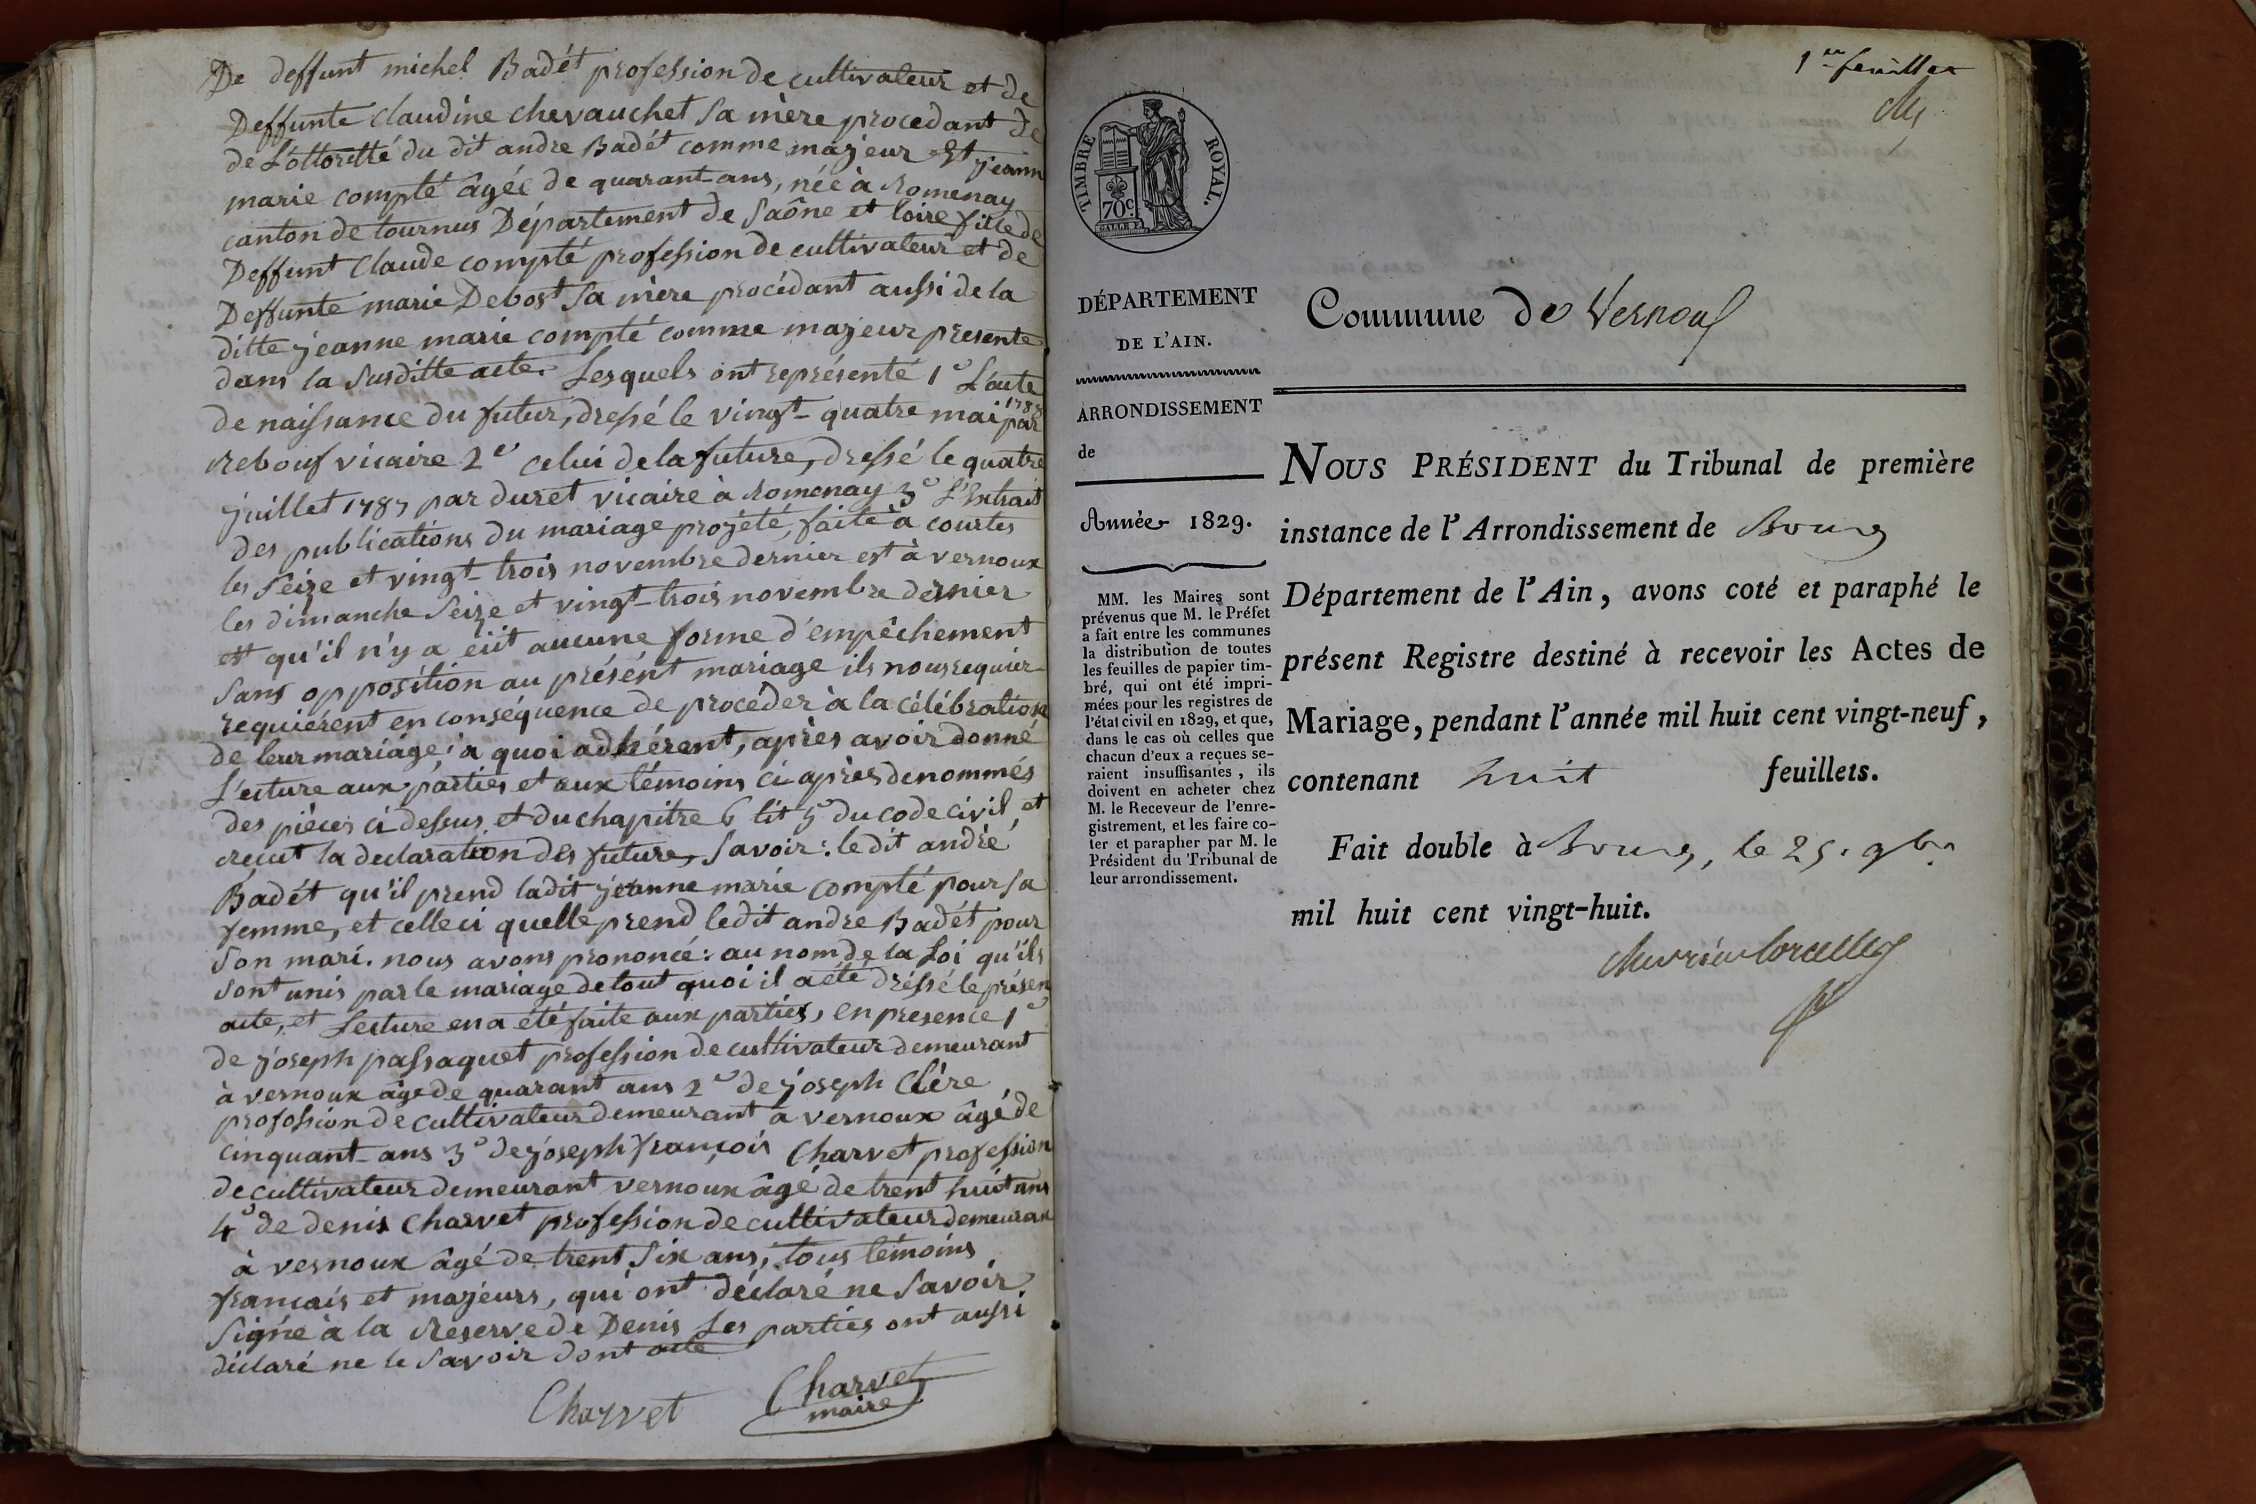 De deffunt michel Badét profession de cultivateur et de
Deffunte claudine chevauchet sa mère procedant de
de L'ottoritté du dit andre Badét comme majeur Et jeann
marie compté âgée de quarant-ans, née à Romenay
canton de tournus Département de Saône et loire fille de
Deffunt Claude compté profession de cultivateur et de
Deffunte marie Debost sa mère procédant aussi de la
ditte jeanne marie compté comme majeur presente
dans la susditte acte. Lesquels ont représenté 1° L'acte
de naissance du futur, dressé le vingt-quatre mai 1788 par
rebouf vicaire 2° celui de la future, dressé le quatre
juillet 1787 par duret vicaire à Romenay 3° L'Extrait
des publications du mariage projété, faite à courtes
les seize et vingt-trois novembre dernier est à vernoux
les dimanche seize et vingt-trois novembre dernier
et qu'il n'y a eüt aucune forme d'empêchement
sans opposition au présént mariage ils nous requier-
requiérent en conséquence de procéder à la célébration
de leur mariage; a quoi adhérent, après avoir donné
L'ecture aux parties et aux témoins ci après denommés
des pièces ci dessus, et du chapitre 6 tit 5 du code civil, et
reçut la declaration des future, savoir: le dit andré
Badét qu'il prend ladit jeanne marie compté pour sa
femme, et celle ci quelle prend ledit andre Badét pour
son mari. nous avons prononcé: au nom de la Loi qu'ils
sont unis par le mariage de tout quoi il a été dréssé le présen
acte, et Lecture en a été faite aux parties, en presence 1°
de joseph passaquet profession de cultivateur demeurant
à vernoux âge de quarant ans 2° de joseph Clére
profession de cultivateur demeurant à vernoux âgé de
cinquant-ans 3° de joseph françois Charvet profession
de cultivateur demeurant vernoux âgé de trent huit ans
4° de denis Charvet profession de cultivateur demeuran
à vernoux âgé de trent six ans, tous témoins
français et majeurs, qui ont déclaré ne savoir
signé à la reserve de Denis Les parties ont aussi
déclaré ne le savoir dont acte
Charvet Charvet
maire
1er feuillet
TIMBRE ROYAL.
70c.
DÉPARTEMENT
DE L'AIN.
ARRONDISSEMENT
de
Année 1829.
MM. les Maires sont
prévenus que M. le Préfet
a fait entre les communes
la distribution de toutes
les feuilles de papier tim-
bré, qui ont été impri-
mées pour les registres de
l'état civil en 1829, et que,
dans le cas où celles que
chacun d'eux a reçues se-
raient insuffisantes, ils
doivent en acheter chez
M. le Receveur de l'enre-
gistrement, et les faire co-
ter et parapher par M. le
Président du Tribunal de
leur arrondissement.
Commune de Vernoux
NOUS PRÉSIDENT du Tribunal de première
instance de l'Arrondissement de Bourg
Département de l'Ain, avons coté et paraphé le
présent Registre destiné à recevoir les Actes de
Mariage, pendant l'année mil huit cent vingt-neuf,
contenant huit feuillets.
Fait double à Bourg, le 25. 9bre
mil huit cent vingt-huit.